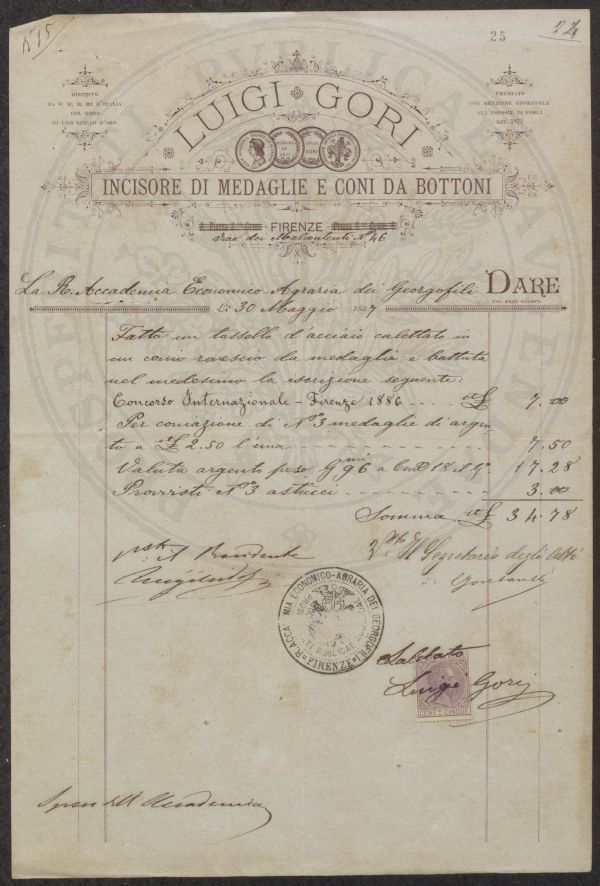 N 15
25
24
DISTINTO
DA S. M. IL RE D'ITALIA
COL DONO
DI UNO SPILLO D'ORO
PREMIATO
CON MENZIONE ONOREVOLE
ALL'ESPOSIZ. DI FORLÌ
DEL 1871
LUIGI GORI
INCISORE DI MEDAGLIE E CONI DA BOTTONI
FIRENZE
Via dei Malcontenti N° 46
La R. Accademia Economico Agraria dei Georgofili DARE
Li 30 Maggio 1887
Fatto un tassello d'acciaio calettato in
un conio rovescio da medaglie e battuta
nel medesimo la iscrizione seguente:
Concorso Internazionale - Firenze 1886 It £ 7.00
Per coniazione di N° 3 medaglie di argen
to a It £ 2.50 l'una 7.50
Valuta argento peso G.mi 96 a Cent. 18 il G. 17.28
Provvisti N° 3 astucci 3.00
Somma It £ 34.78
Il Presidente
Il Segretario degli Atti
R. ACCADEMIA ECONOMICO-AGRARIA DEI GEORGOFILI
FIRENZE
Saldato
Luigi Gori
CENT. CINQUE
Accademia